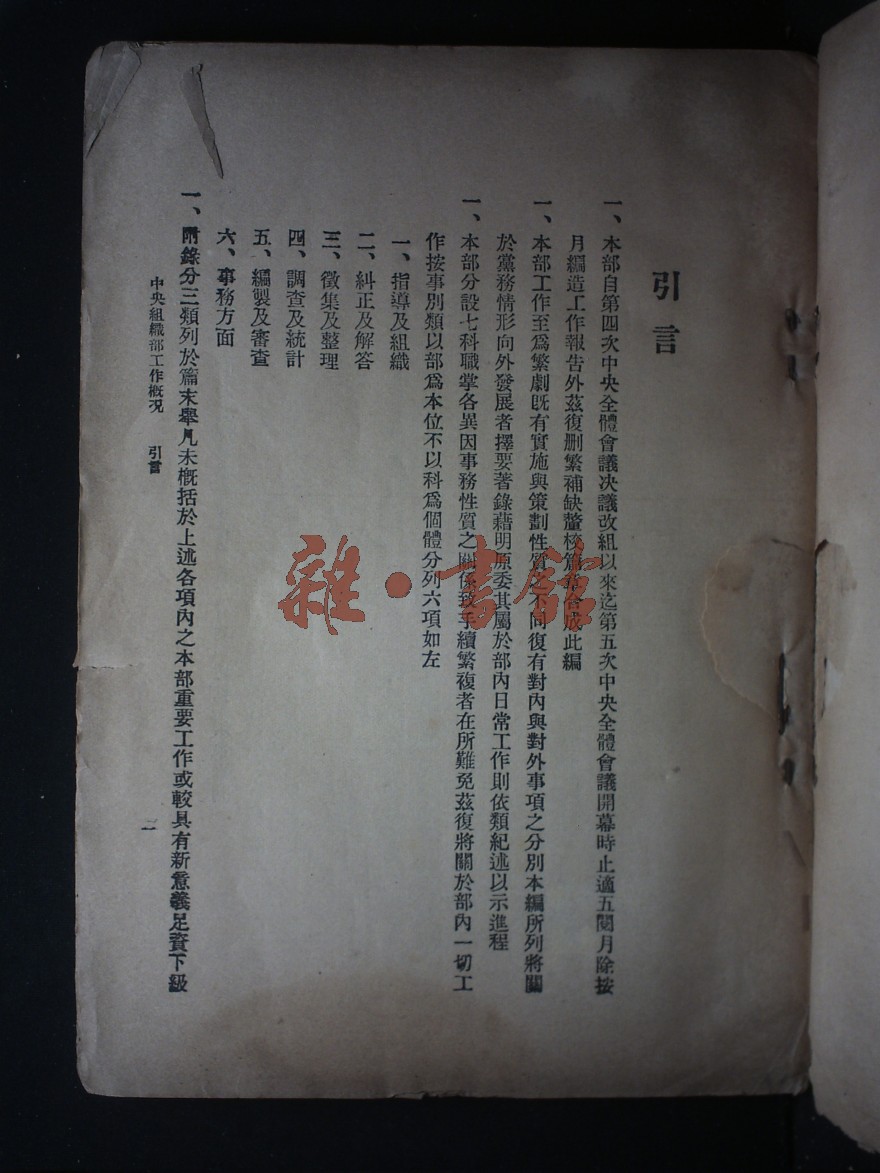 引言
一、本部自第四次中央全體會議決議改組以來迄第五次中央全體會議開幕時止適五閱月除按
月編造工作報告外茲復刪繁補缺釐核篇章合成此編
一、本部工作至爲繁劇既有實施與策劃性質之不同復有對內與對外事項之分別本編所列將關
於黨務情形向外發展者擇要著錄藉明原委其屬於部內日常工作則依類紀述以示進程
一、本部分設七科職掌各異因事務性質之關係致手續繁複者在所難免茲復將關於部內一切工
作按事別類以部爲本位不以科爲個體分列六項如左
一、指導及組織
二、糾正及解答
三、徵集及整理
四、調查及統計
五、編製及審查
六、事務方面
一、附錄分三類列於篇末舉凡未概括於上述各項內之本部重要工作或較具有新意義足資下級
中央組織部工作概況 引言
雜·書館